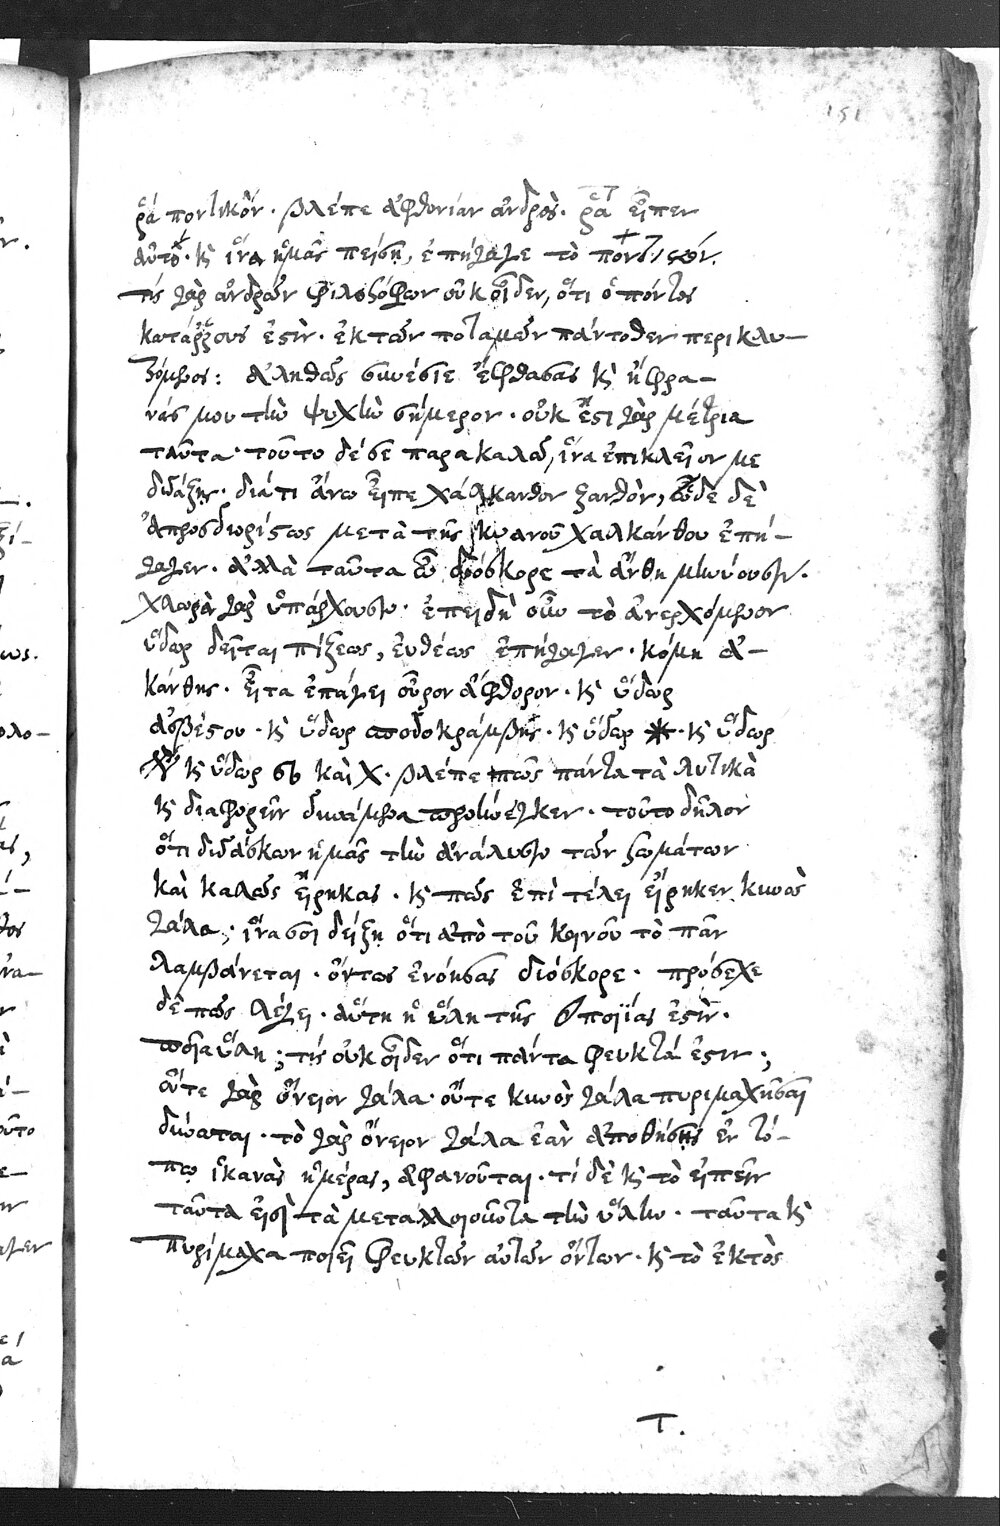 151
ῥᾶ ποντικόν. βλέπε ἀφθονίαν ἀνδρὸς. ῥᾶ εἶπεν
αὐτὸ. κ̀ ἵνα ἡμᾶς πείσῃ, ἐπήγαγε τὸ ποντικόν.
τίς γὰρ ἀνδρῶν φιλοσόφων οὐκ οἶδεν, ὅτι ὁ πόντος
κατάρρους ἐστὶν. ἐκ τῶν ποταμῶν πάντοθεν περικλυ-
ζόμενος: ἀληθῶς συνέσιε ἔφθασας κ̀ ηὔφρα-
νάς μου τὴν ψυχὴν σήμερον. οὐκ ἔστι γὰρ μέτρια
ταῦτα. τοῦτο δέ σε παρακαλῶ, ἵνα ἐπικλεῖον με
διδάξῃς. διάτι ἄνω εἶπε χάλκανθον ξανθὸν, ὧδε δὲ
ἀπροσδιορίστως μετὰ τῆς κυανοῦ χαλκάνθου ἐπή-
γαγεν. ἀλλὰ ταῦτα ὦ διόσκορε τὰ ἄνθη μηνύουσιν.
χλωρὰ γὰρ ὑπάρχουσιν. ἐπειδὴ οὖν τὸ ἀνερχόμενον
ὕδωρ δεῖται πήξεως, εὐθέως ἐπήγαγεν. κόμη ἀ-
κάνθης. εἶτα ἐπάγει οὖρον ἄφθορον. κ̀ ὕδωρ
ἀσβέστου. κ̀ ὕδωρ σποδοκράμβης. κ̀ ὕδωρ ⁎. κ̀ ὕδωρ
κ̀ ὕδωρ καὶ χ. βλέπε πῶς πάντα τὰ λυτικὰ
κ̀ διαφορεῖν δυνάμενα προσήνεγκεν. τοῦτο δῆλον
ὅτι διδάσκων ἡμᾶς τὴν ἀνάλυσιν τῶν σωμάτων
καὶ καλῶς εἴρηκας. κ̀ πῶς ἐπὶ τέλει εἴρηκεν κυνὸς
γάλα; ἵνα σοι δείξῃ ὅτι ἀπὸ τοῦ κοινοῦ τὸ πᾶν
λαμβάνεται. ὄντως ἐνόησας διόσκορε. πρόσεχε
δὲ πῶς λέγει. αὕτη ἡ ὕλη τῆς ποιΐας ἐστὶν.
ποία ὕλη; τίς οὐκ οἶδεν ὅτι πάντα φευκτά ἐστιν;
οὔτε γὰρ ὄνειον γάλα. οὔτε κυνὸς γάλα πυριμαχῆσαι
δύναται. τὸ γὰρ ὄνειον γάλα ἐὰν ἀποθήσῃς ἐν τό-
πῳ ἱκανὰς ἡμέρας, ἀφανοῦται. τί δὲ κ̀ τὸ εἰπεῖν
ταῦτα εἰσὶ τὰ μεταλλοιοῦντα τὴν ὕλην. ταῦτα κ̀
πυρίμαχα ποιεῖ φευκτῶν αὐτῶν ὄντων. κ̀ τὸ ἐκτὸς
Τ.